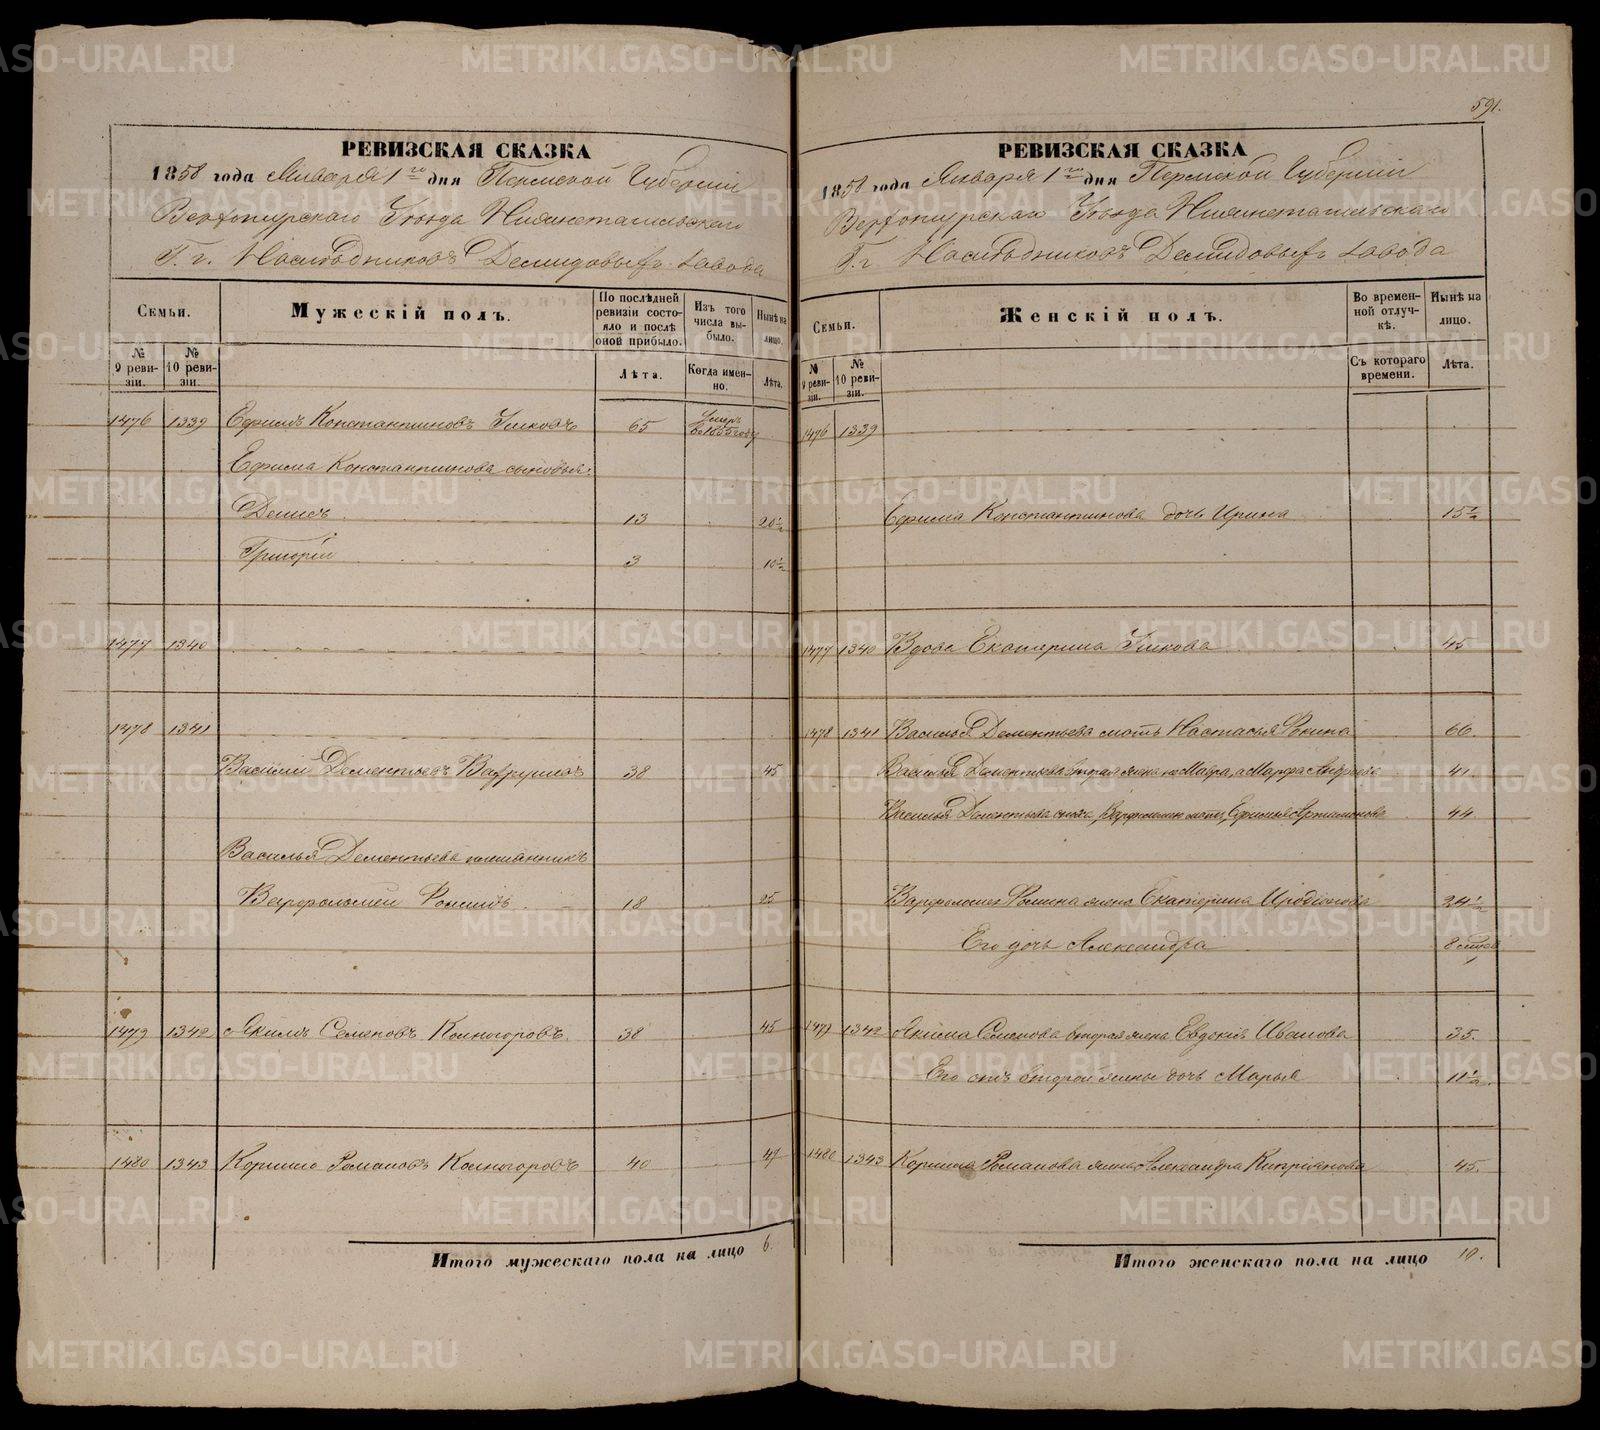 591.
РЕВИЗСКАЯ СКАЗКА
1858 года Января 1го дня Пермской Губерніи
Верхотурскаго Уѣзда Нижнетагильскаго
Г. г. Наслѣдниковъ Демидовыхъ завода
Семьи.
Мужескій полъ.
По послѣдней ревизіи состояло и послѣ оной прибыло.
Изъ того числа выбыло.
Нынѣ на лицо.
№ 9 ревизіи.
№ 10 ревизіи.
Лѣта.
Когда именно.
Лѣта.
1476 1339 Ефимъ Константиновъ 65 Умеръ въ 1855 году
Ефима Константинова сыновья:
Денисъ 13 20½
Григорій 3 10½
1477 1340
1478 1341
Василій Дементьевъ Вахрушевъ 38 45
Василья Дементьева племянникъ
Варфоломей Фоминъ 18 25
1479 1342 Якимъ Семеновъ Комногоровъ 38 45
1480 1343 Корнило Романовъ Комногоровъ 40 47
Итого мужескаго пола на лицо 6.
РЕВИЗСКАЯ СКАЗКА
1858 года Января 1го дня Пермской Губерніи
Верхотурскаго Уѣзда Нижнетагильскаго
Г. г. Наслѣдниковъ Демидовыхъ завода
Семьи.
Женскій полъ.
Во временной отлучкѣ.
Нынѣ на лицо.
№ 9 ревизіи.
№ 10 ревизіи.
Съ котораго времени.
Лѣта.
1476 1339
Ефима Константинова дочь Ирина 15½
1477 1340 Вдова Екатерина 45
1478 1341 Василья Дементьева мать Настасья Фокина 66.
Василья Дементьева вторая жена не Мавра, а Марфа Андреева 41.
Василья Дементьева сноха, Варфоломея мать, Ефимья Артамонова 44
Варфоломея Фомина жена Екатерина Иродіонова 24½
Его дочь Александра 8 мѣсяц
1479 1342 Якима Семенова вторая жена Евдокія Иванова 35.
Его отъ второй жены дочь Марья 11½.
1480 1343 Корнила Романова жена Александра Кипріянова 45.
Итого женскаго пола на лицо 10.
METRIKI.GASO-URAL.RU